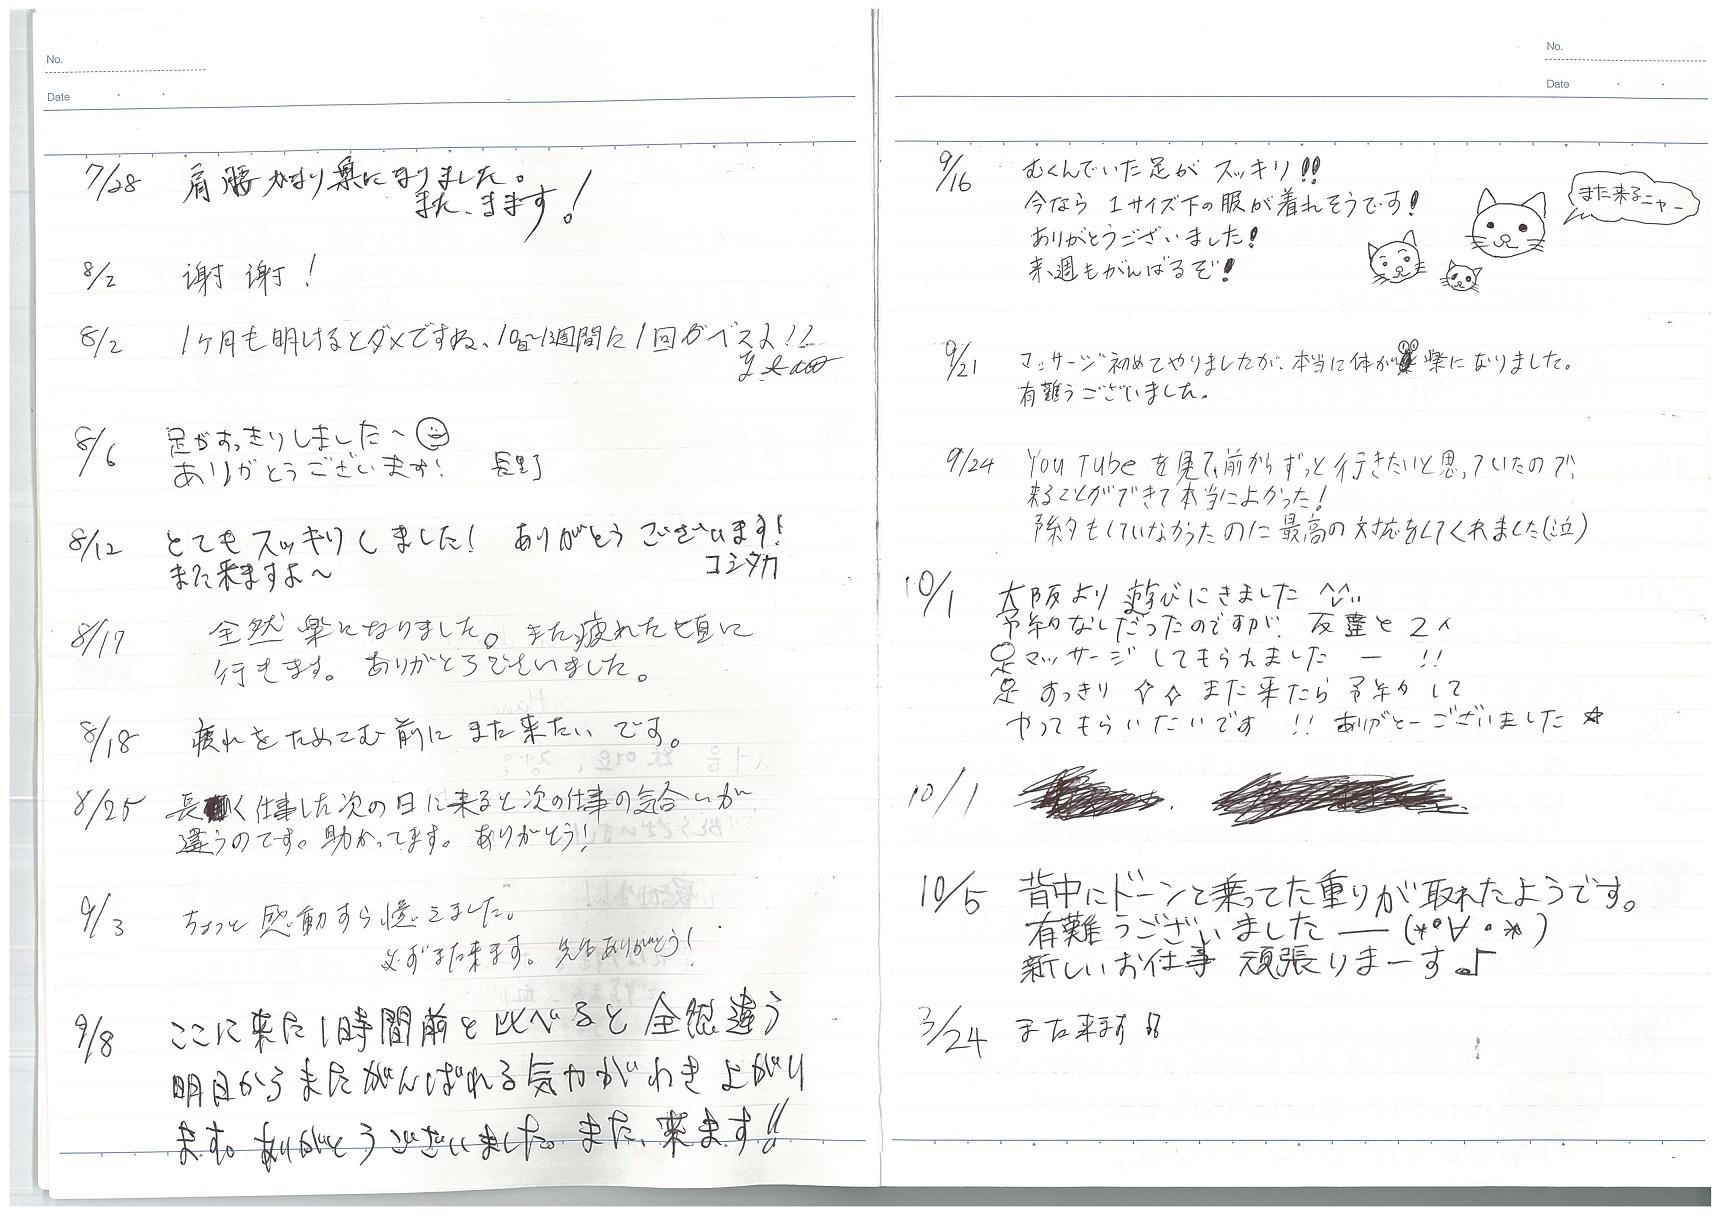 No.
Date
7/28 肩腰かなり楽になりました。
また、きます!
8/2 谢谢!
8/2 1ヶ月も明けるとダメですね、1週間に1回がベスト!!
8/6 足がすっきりしました〜
ありがとうございます! 長野
8/12 とてもスッキリしました! ありがとうございます!
また来ますよ〜 コシダカ
8/17 全然楽になりました。また疲れた頃に
行きます。ありがとうございました。
8/18 疲れをためこむ前にまた来たいです。
8/25 長く仕事した次の日に来ると次の仕事の気合いが
違うのです。助かってます。ありがとう!
9/3 ちょっと感動すら憶えました。
必ずまた来ます。先生ありがとう!
9/8 ここに来た1時間前と比べると全然違う
明日からまたがんばれる気力がわき上がり
ます。ありがとうございました。また、来ます!!
No.
Date
9/16 むくんでいた足がスッキリ!!
今なら1サイズ下の服が着れそうです!
ありがとうございました!
来週もがんばるぞ!
また来るニャー
9/21 マッサージ初めてやりましたが、本当に体が楽になりました。
有難うございました。
9/24 YouTubeを見て、前からずっと行きたいと思っていたので、
来ることができて本当によかった!
予約もしていなかったのに最高の対応をしてくれました(泣)
10/1 大阪より遊びにきました ^^
予約なしだったのですが、友達と2人
足マッサージしてもらえましたー!!
足すっきり☆☆また来たら予約して
やってもらいたいです!!ありがとーございました☆
10/1
10/5 背中にドーンと乗ってた重りが取れたようです。
有難うございましたー(*°∀・*)
新しいお仕事 頑張りまーす♪
3/24 また来ます!!